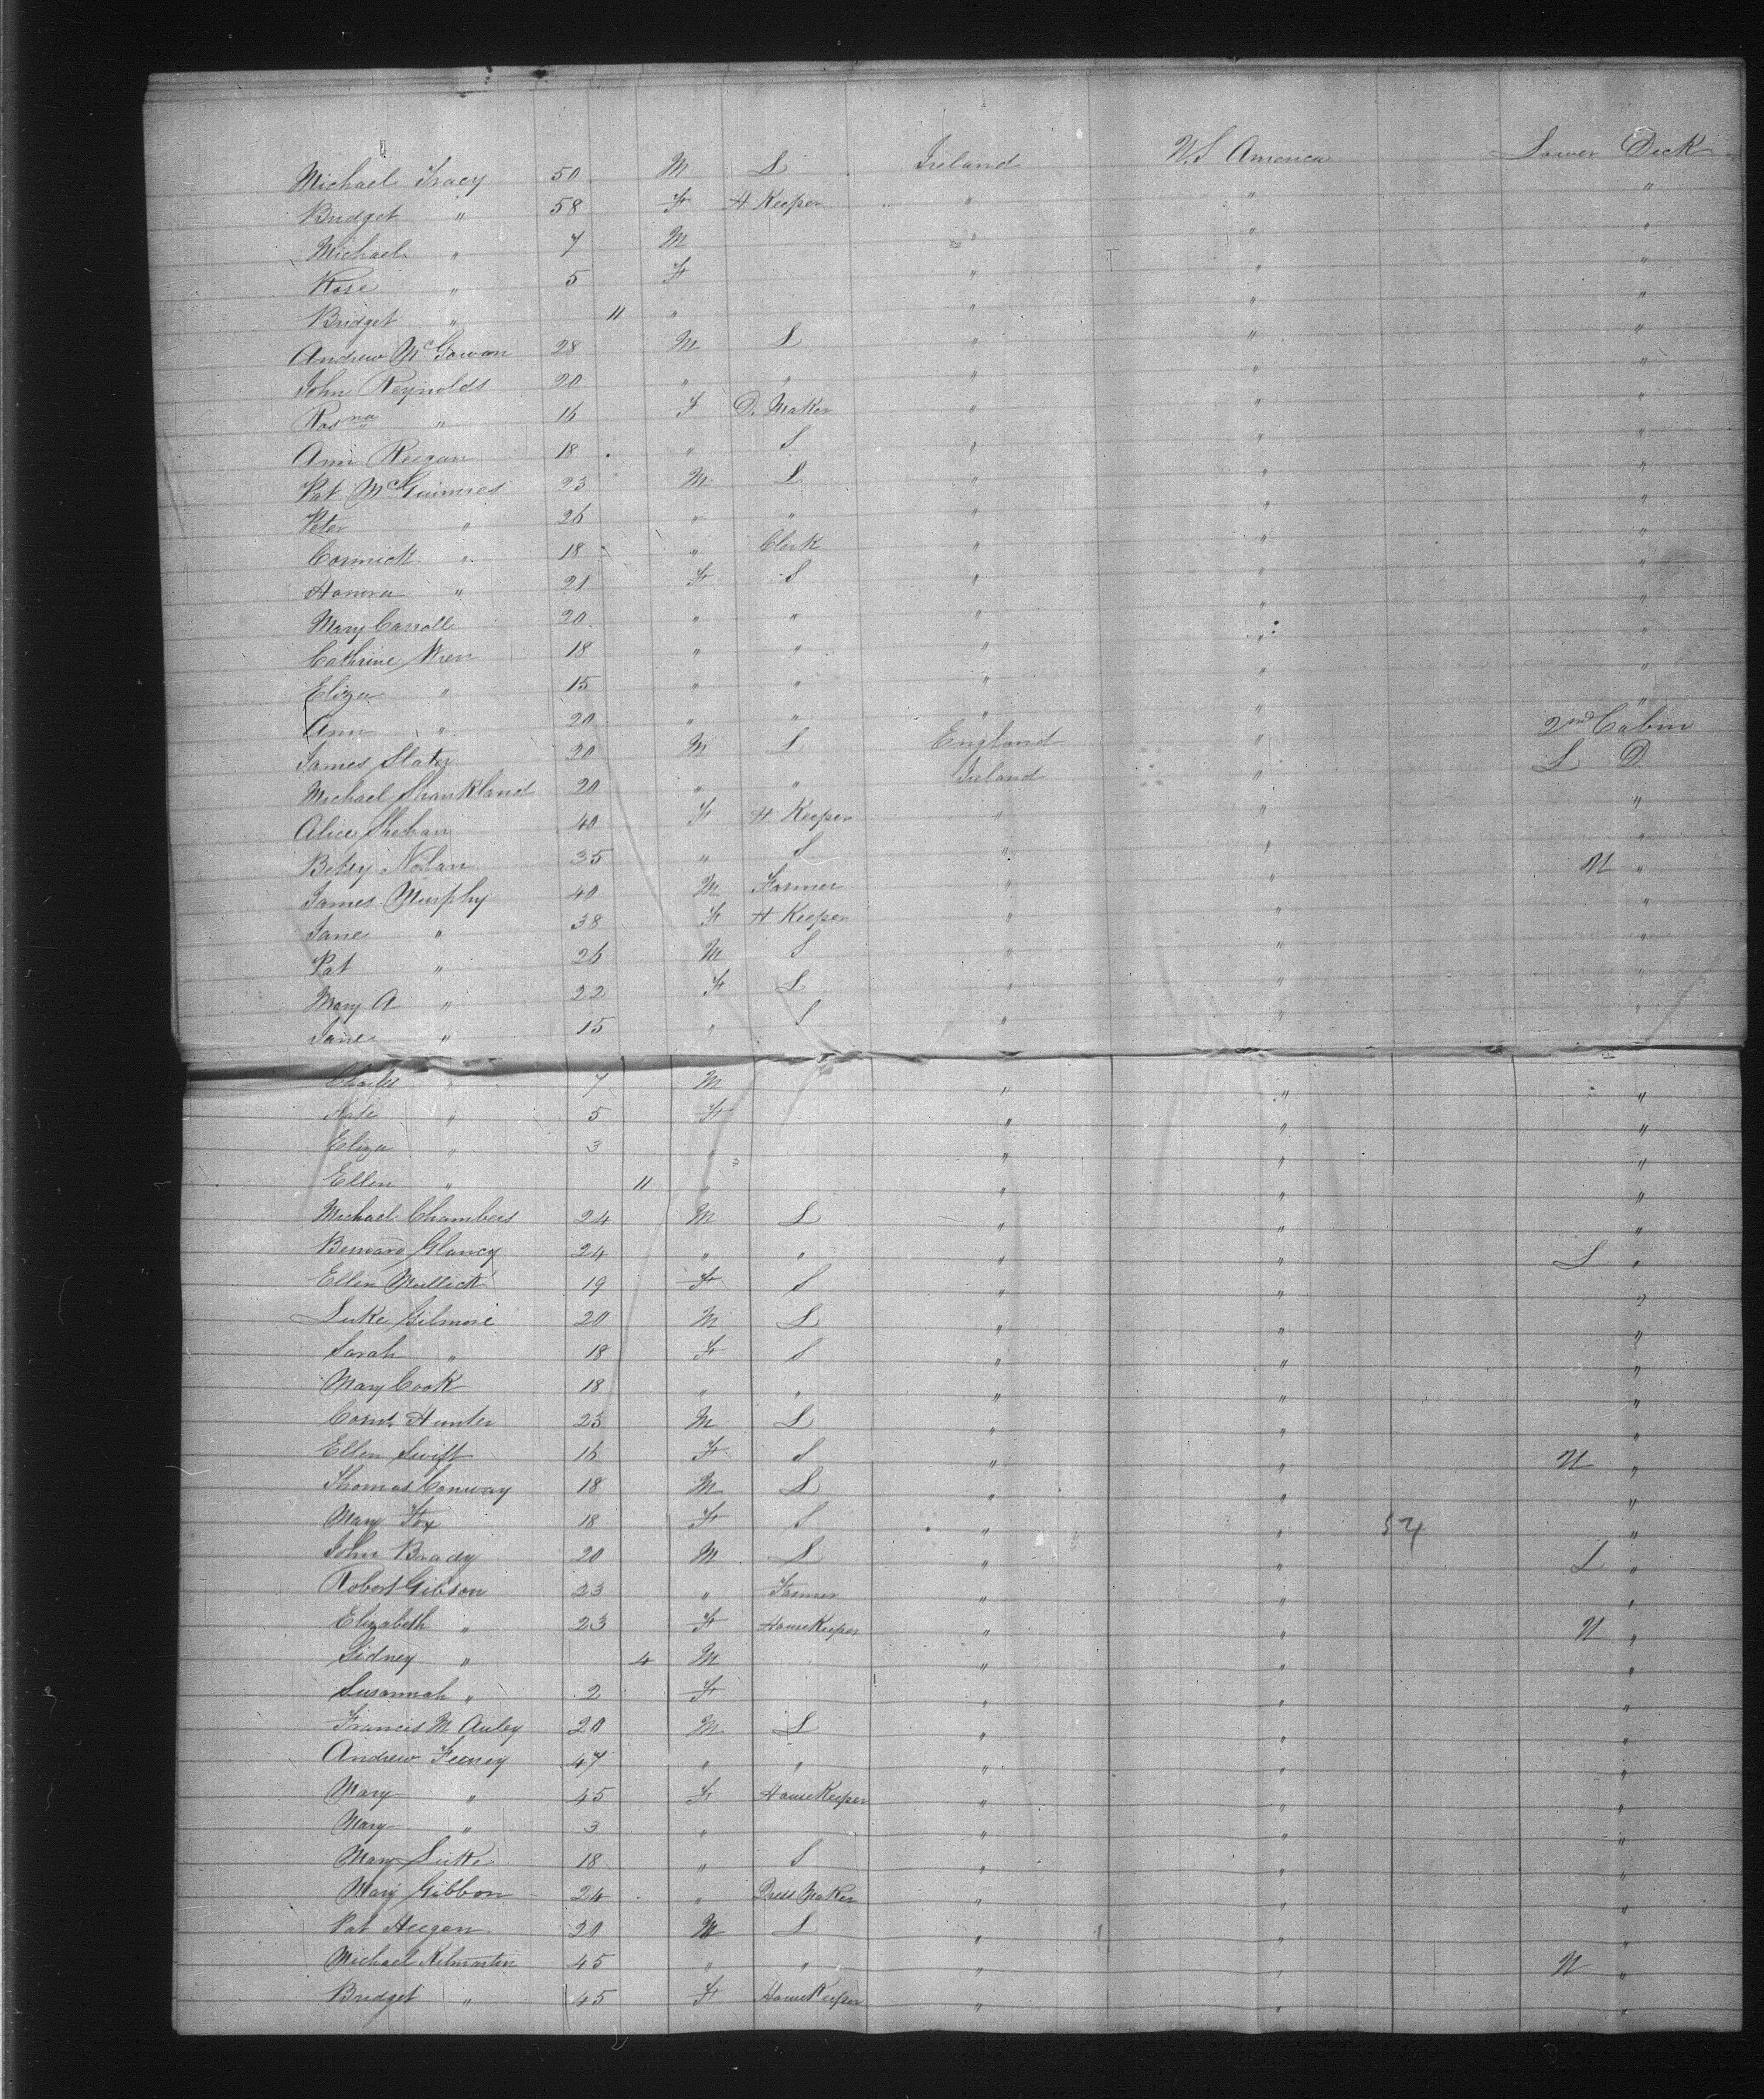 Michael Tracy 50 M L Ireland U.S America Lower Deck
Bridget " 58 F H Keeper " " "
Michael " 7 M " " "
Rose " 5 F " " "
Bridget " 11 " " " "
Andrew McGowan 28 M L " " "
John Reynolds 20 " " " " "
Rosna " 16 F D. Maker " " "
Ann Reegan 18 " S " " "
Pat McGuinnes 23 M L " " "
Peter " 26 " " " " "
Cormick " 18 " Clerk " " "
Honora " 21 F S " " "
Mary Carroll 20 " " " " "
Cathrine Wren 18 " " " " "
Eliza " 15 " " " " "
Ann " 20 " " " " "
James Slater 20 M L England " 2nd Cabin
Michael Shankland 20 " " Ireland " L D
Alice Shehan 40 F H Keeper " " "
Betsy Nolan 35 " S " " "
James Murphy 40 M Farmer " " U "
Jane " 38 F H Keeper " " "
Pat " 26 M S " " "
Mary A " 22 F L " " "
Jane " 15 " S " " "
Charles " 7 M " " "
" 5 F " " "
Eliza " 3 " " " "
Ellen " 11 " " " "
Michael Chambers 24 M L " " "
Bernard Glancy 24 " " " " L "
Ellen Mullick 19 F S " " "
Luke Gilmore 20 M L " " "
Sarah " 18 F S " " "
Mary Cook 18 " " " " "
Hunter 23 M L " " "
Ellen Swift 16 F S " " U "
Thomas Conway 18 M L " " "
Mary Fox 18 F S " " 54 "
John Brady 20 M L " " L "
Robert Gibson 23 " Farmer " " "
Elizabeth " 23 F HouseKeeper " " U "
Sidney " 4 M " " "
Susannah " 2 F " " "
Francis M Auley 20 M L " " "
Andrew Feeney 47 " " " " "
Mary " 45 F HouseKeeper " " "
Mary " 3 " " " "
Mary 18 " S " " "
Mary Gibbon 24 " Dress Maker " " "
Pat Heegan 20 M L " " "
Michael Kilmartin 45 " " " " U "
Bridget " 45 F HouseKeeper " " "